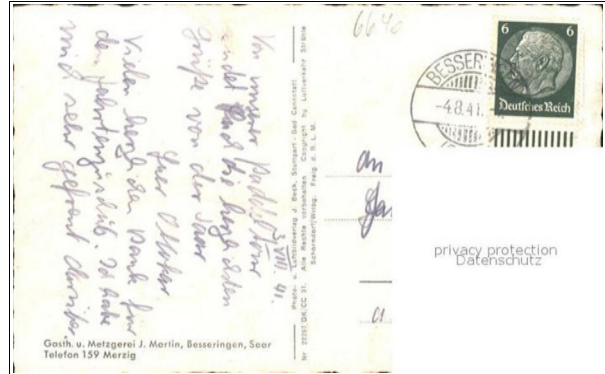 6640
6 6
Deutsches Reich
BESSER
-4.8.41.
Von unserer Paddeltour
3. VIII. 41.
sendet Euch die herzlichsten
Grüße von der Saar
Euer Ottokar
Vielen herzlichen Dank für
den Fahrtengruß. Ich habe
mich sehr gefreut darüber.
Photo- u. Luftbildverlag J. Beck, Stuttgart - Bad Cannstatt
Alle Rechte vorbehalten Copyright by Luftverkehr Strähle
Schorndorf/Wttbg. Freig. d. R. L. M.
An
privacy protection
Datenschutz
Gasth. u. Metzgerei J. Martin, Besseringen, Saar
Telefon 159 Merzig